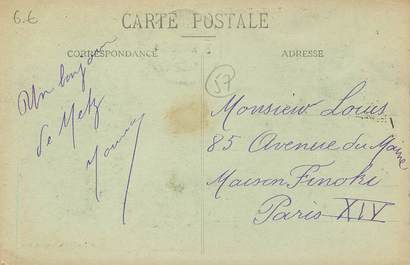 6.6
CARTE POSTALE
CORRESPONDANCE
ADRESSE
57
Un bonjour
de Metz
Monsieur Louis
85 Avenue du Maine
Maison Finoki
Paris XIV